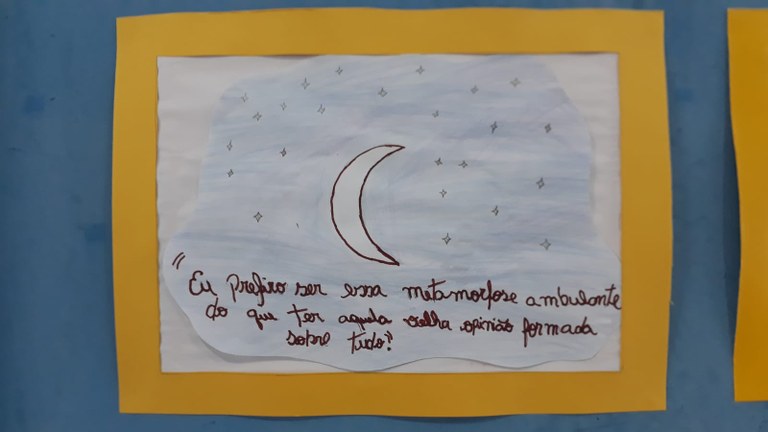 "Eu prefiro ser essa metamorfose ambulante
do que ter aquela velha opinião formada
sobre tudo"